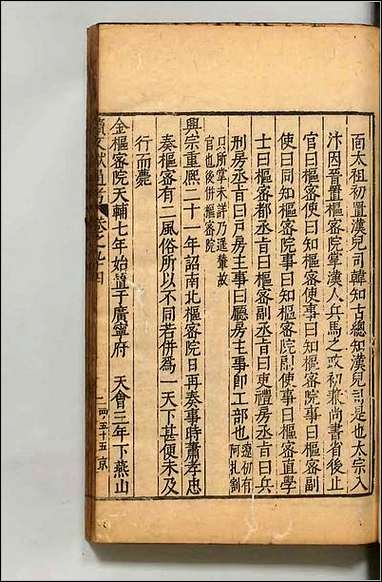 面太祖初置漢兒司韓知古總知漢兒司是也太宗入
汴因晉置樞密院掌漢人兵馬之政初兼尚書省後止
官曰樞密使曰知樞密使事曰知樞密院事曰樞密副
使曰同知樞密院事曰知樞密院副使事曰樞密直學
士曰樞密都丞旨曰樞密副丞旨曰吏禮房丞旨曰兵
刑房丞旨曰戶房主事曰廳房主事即工部也
遼初有
阿札割
只所掌未詳乃遥輦故
官也後併樞密院
興宗重熙二十一年詔南北樞密院日再奏事時蕭孝忠
奏樞密有二風俗所以不同若併爲一天下甚便未及
行而薨
金樞密院天輔七年始置于廣寧府 天會三年下燕山
文獻通考 卷之九十四
二四五十五 京